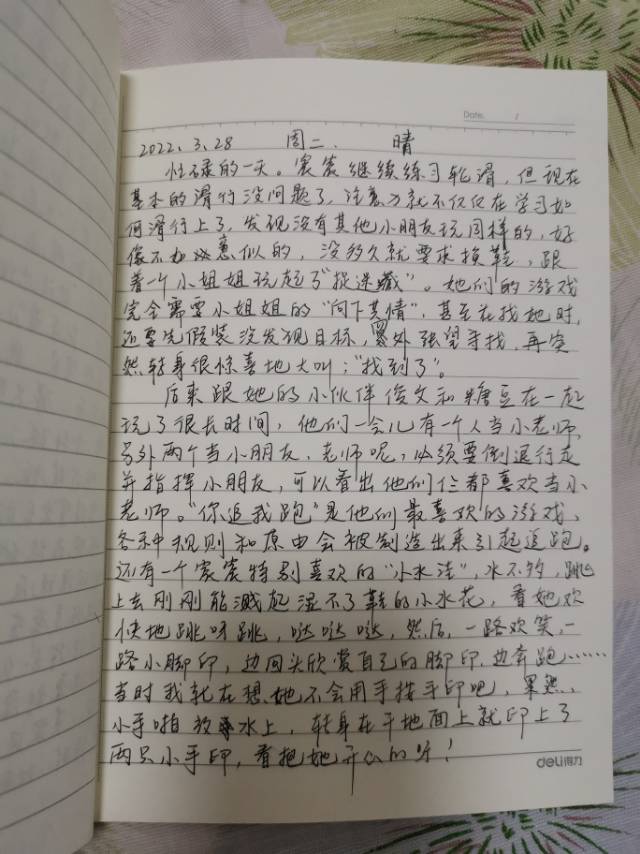 Date. /
2022.3.28 周二. 晴
忙碌的一天。宸宸继续练习轮滑，但现在
基本的滑行没问题了，注意力就不仅仅在学习如
何滑行上了，发现没有其他小朋友玩同样的，好
像不如意似的，没多久就要求换鞋，跟
着一个小姐姐玩起了"捉迷藏"。她们的游戏
完全需要小姐姐的"向下共情"，甚至在找她时，
还要先假装没发现目标，四处张望寻找，再突
然转身很惊喜地大叫："找到了"。
后来跟她的小伙伴俊文和糖豆在一起
玩了很长时间，他们一会儿有一个人当小老师，
另外两个当小朋友，老师呢，必须要倒退行走
并指挥小朋友，可以看出他们仨都喜欢当小
老师。"你追我跑"是他们最喜欢的游戏，
各种规则和原由会被制造出来引起追跑。
还有一个宸宸特别喜欢的"小水洼"，水不多，跳
上去刚刚能溅起湿不了鞋的小水花，看她欢
快地跳呀跳，哒哒哒，然后，一路欢笑，一
路小脚印，边回头欣赏自己的脚印，边奔跑……
当时我就在想她不会用手按手印吧，果然，
小手啪放水上，转身在干地面上就印上了
两只小手印，看把她开心的呀！
deli得力